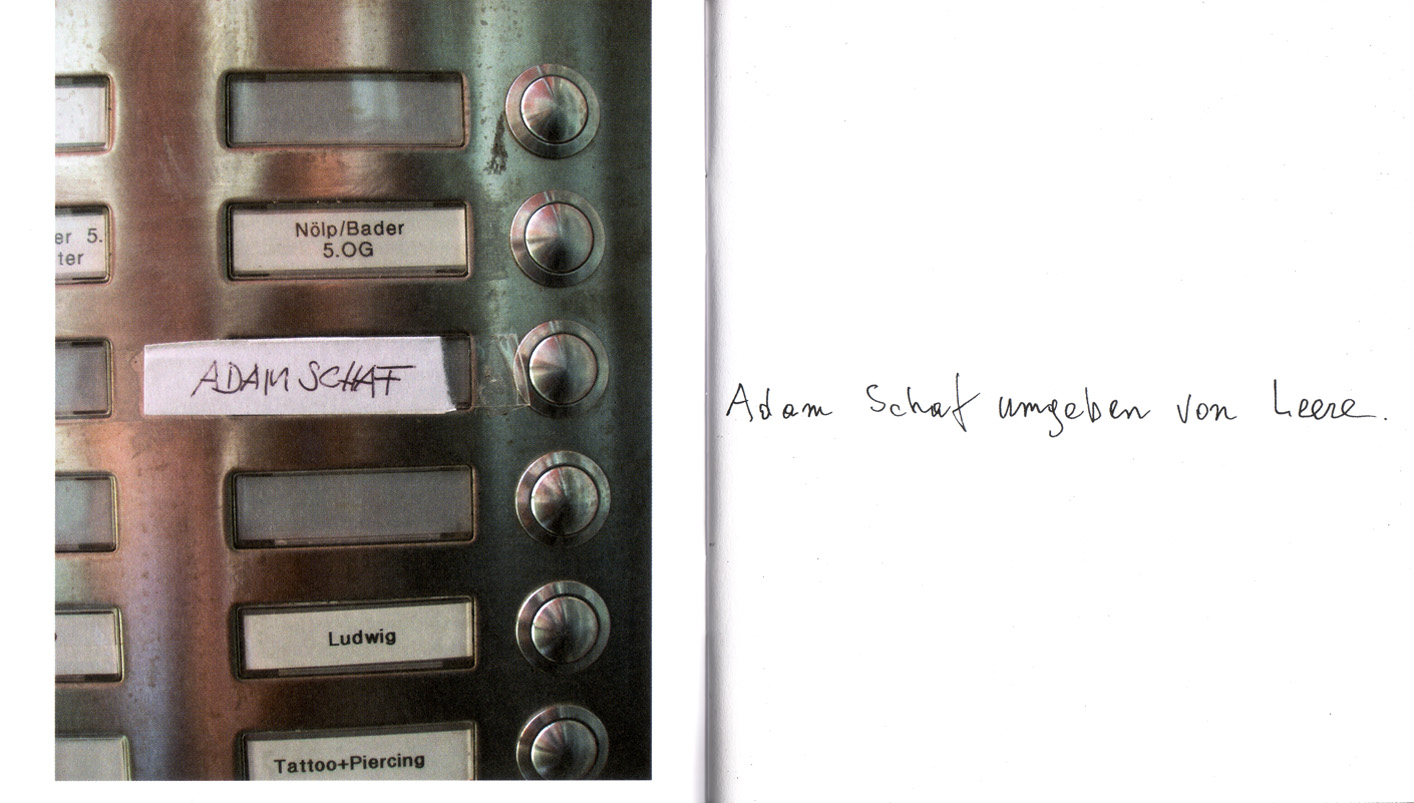 er 5.
ter
Nölp/Bader
5.OG
ADAM SCHAF
Ludwig
Tattoo+Piercing
Adam Schaf umgeben von Leere.